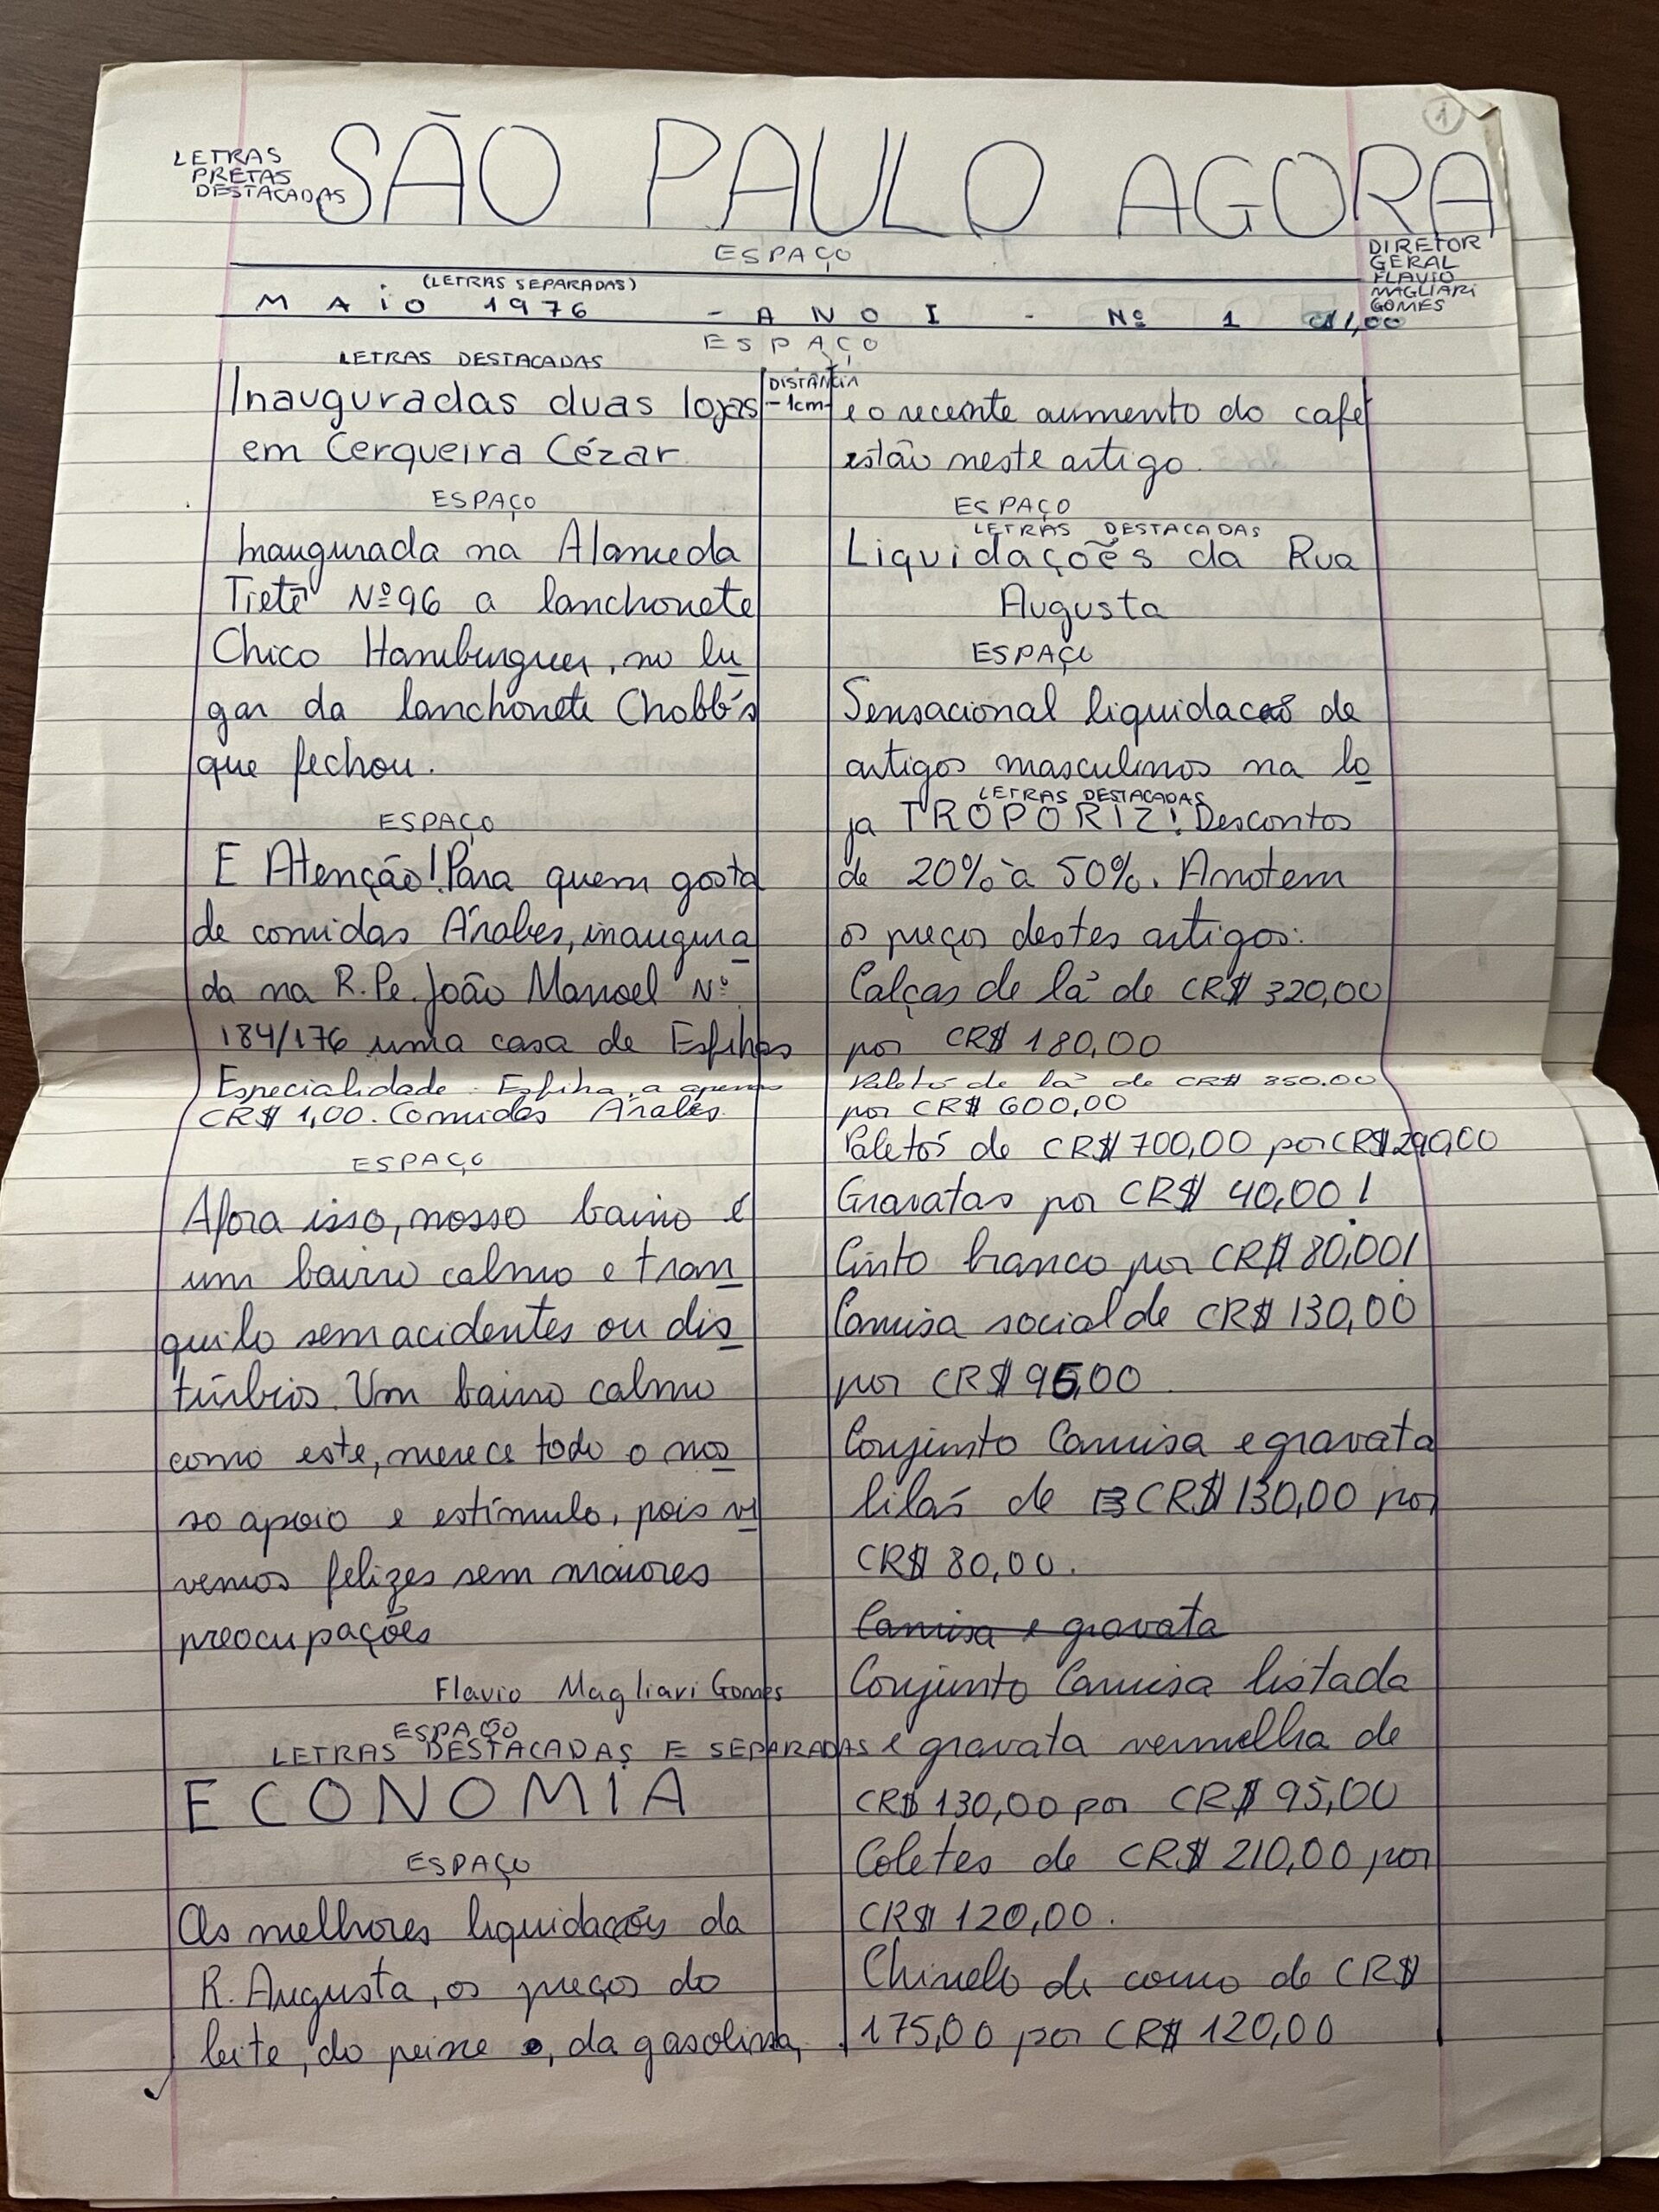 1
LETRAS
PRETAS
DESTACADAS
SÃO PAULO AGORA
ESPAÇO
DIRETOR
GERAL
FLAVIO
MAGLIARI
GOMES
(LETRAS SEPARADAS)
MAiO 1976 - ANO I - Nº 1 CR$1,00
ESPAÇO
LETRAS DESTACADAS
DISTÂNCIA
-1cm-
Inauguradas duas lojas
em Cerqueira Cézar
ESPAÇO
Inaugurada na Alameda
Tietê Nº 96 a lanchonete
Chico Hamburguer, no lu
gar da lanchonete Chobb's
que fechou.
ESPAÇO
E Atenção! Para quem gosta
de comidas Árabes, inaugura
da na R. Pe. João Manoel Nº
184/176 uma casa de Esfihas
Especialidade - Esfiha, a apenas
CR$ 1,00. Comidas Árabes.
ESPAÇO
Afora isso, nosso bairro é
um bairro calmo e tran
quilo sem acidentes ou dis
túrbios. Um bairro calmo
como este, merece todo o nos
so apoio e estímulo, pois vi
vemos felizes sem maiores
preocupações
Flavio Magliari Gomes
ESPAÇO
LETRAS DESTACADAS E SEPARADAS
ECONOMIA
ESPAÇO
As melhores liquidações da
R. Augusta, os preços do
leite, do peixe, da gasolina,
e o recente aumento do café
estão neste artigo.
ESPAÇO
LETRAS DESTACADAS
Liquidações da Rua
Augusta
ESPAÇO
Sensacional liquidacão de
artigos masculinos na lo
LETRAS DESTACADAS
ja TROPORIZ! Descontos
de 20% à 50%. Anotem
os preços destes artigos:
Calças de lã de CR$ 320,00
por CR$ 180,00
Paletó de lã de CR$ 850.00
por CR$ 600,00
Paletós de CR$ 700,00 por CR$ 290,00
Gravatas por CR$ 40,00!
Cinto branco por CR$ 80,00!
Camisa social de CR$ 130,00
por CR$ 95,00
Conjunto Camisa e gravata
lilás de CR$ 130,00 por
CR$ 80,00.
Camisa e gravata
Conjunto Camisa listada
e gravata vermelha de
CR$ 130,00 por CR$ 95,00
Coletes de CR$ 210,00 por
CR$ 120,00.
Chinelo de couro de CR$
175,00 por CR$ 120,00